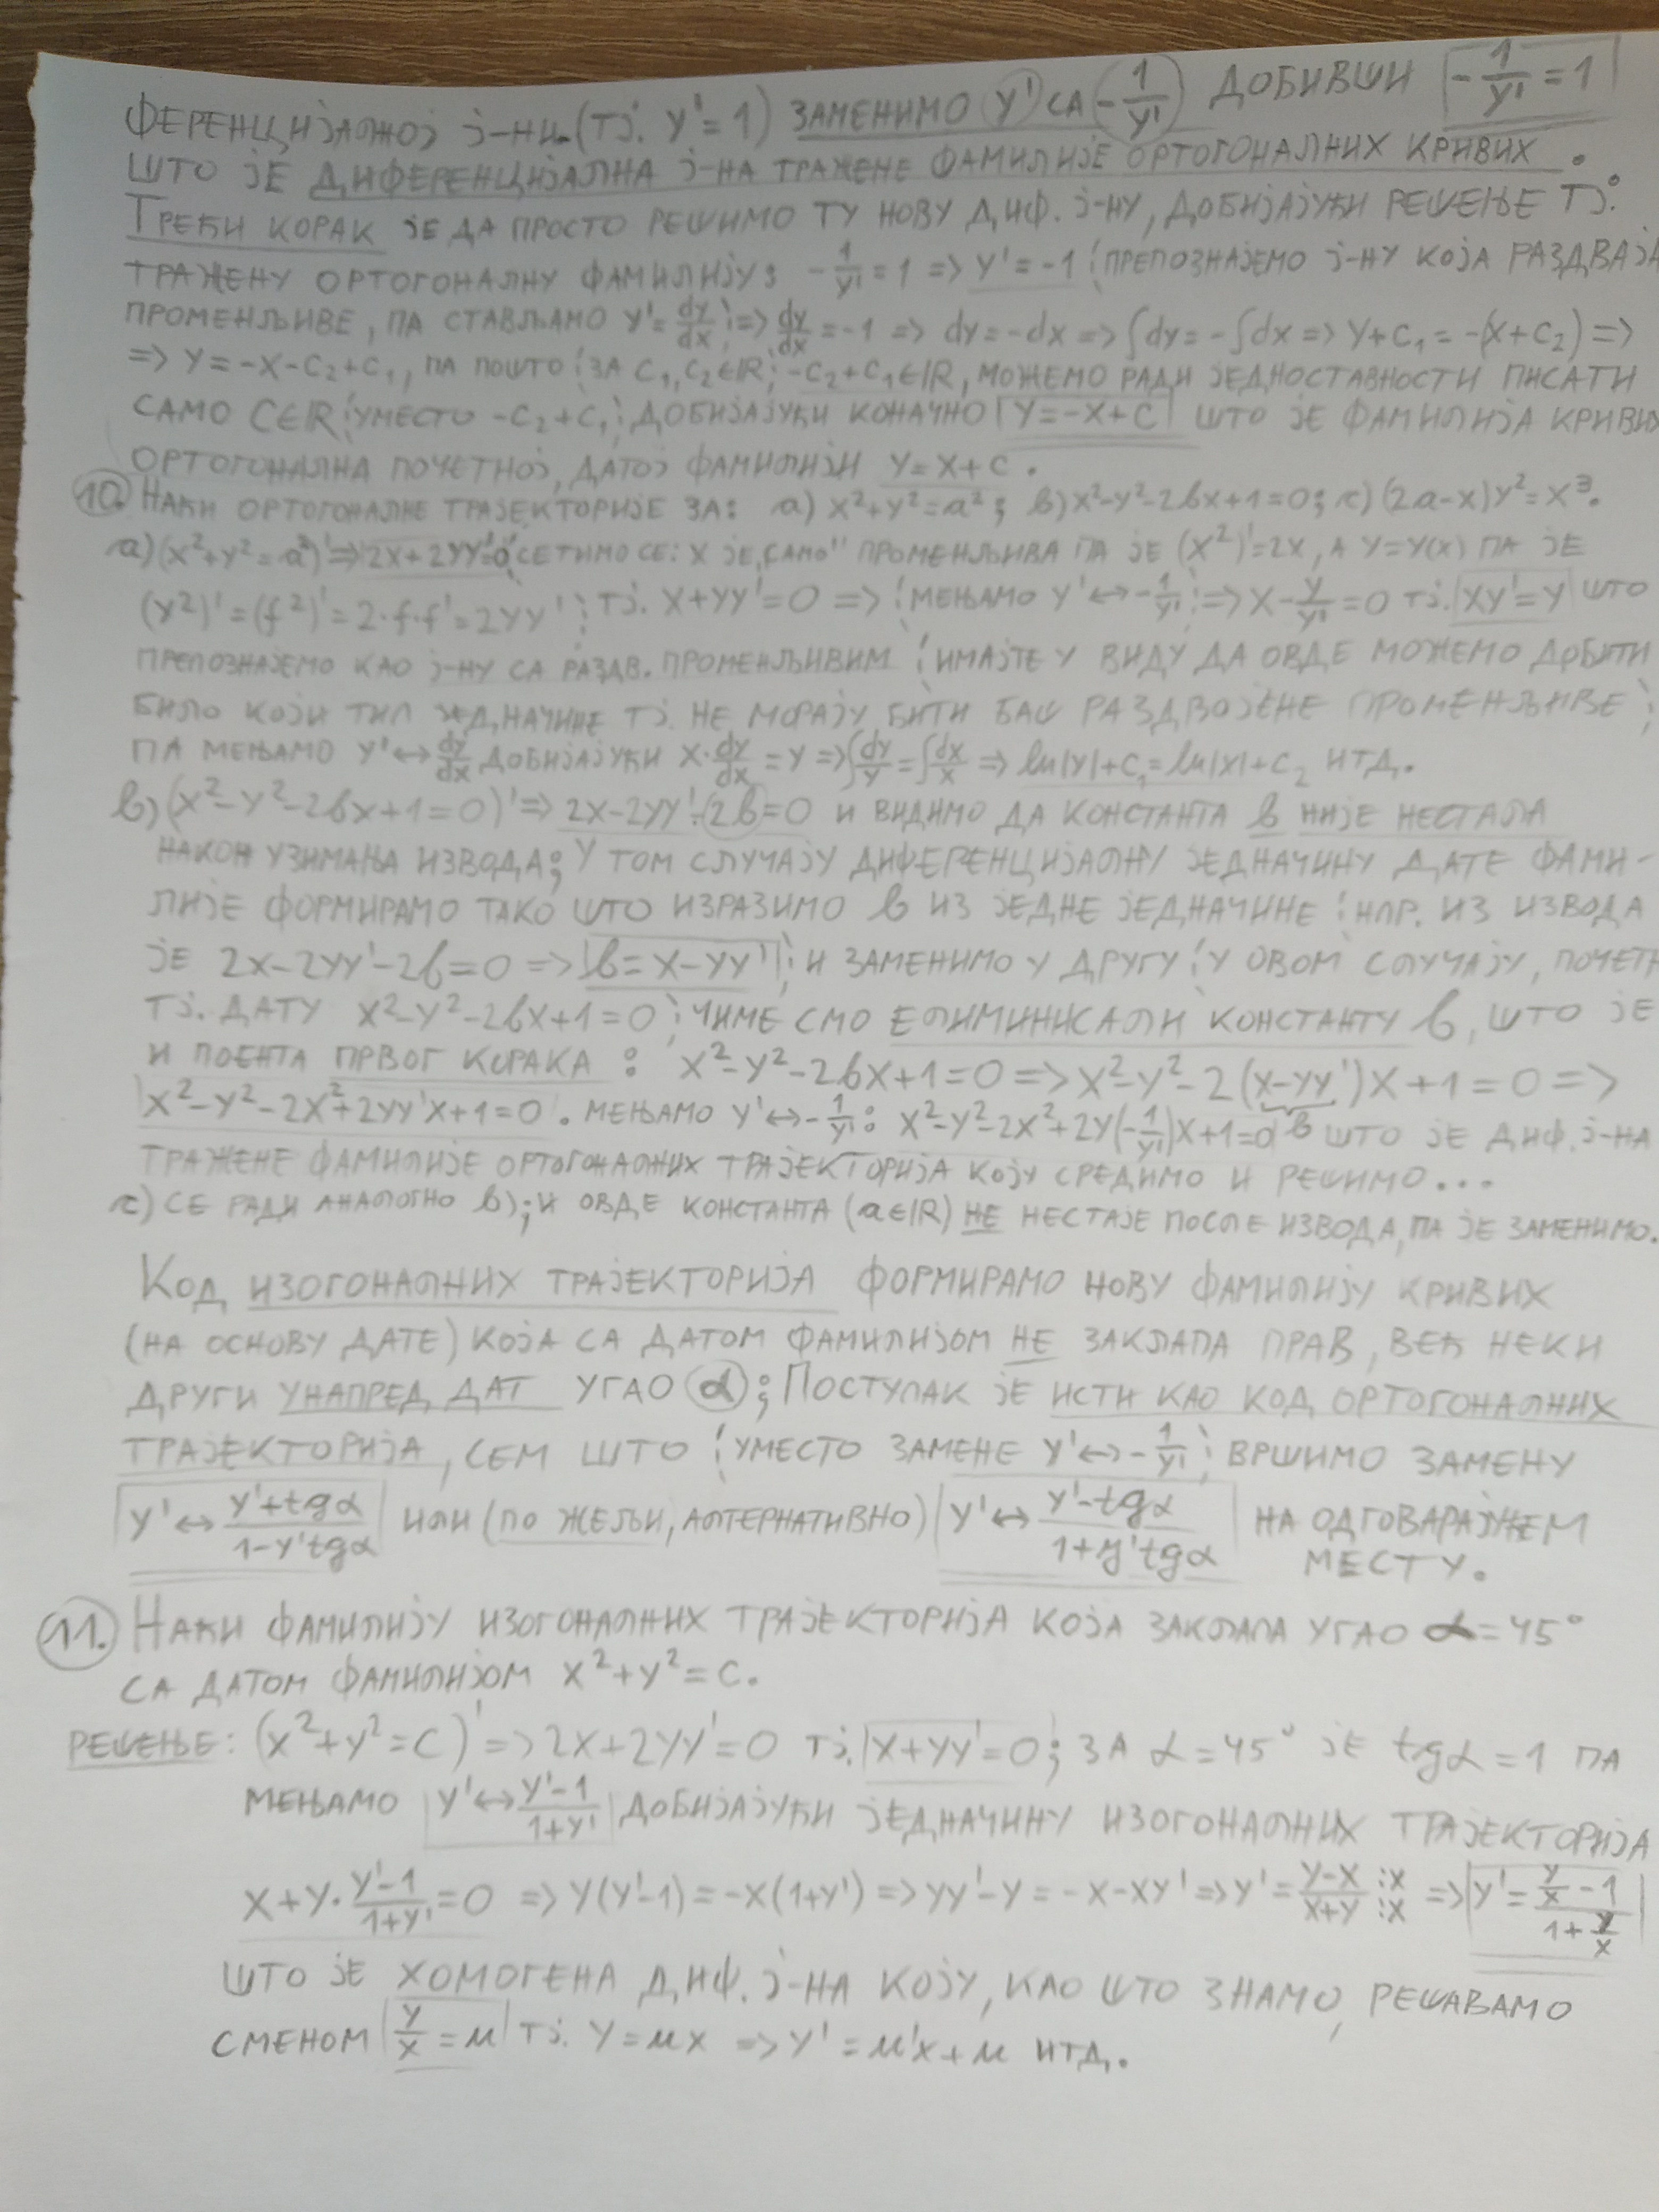 ФЕРЕНЦИЈАЛНОЈ Ј-НИ (ТЈ. Y'=1) ЗАМЕНИМО Y' СА -1/Y' ДОБИВШИ -1/Y' = 1
ШТО ЈЕ ДИФЕРЕНЦИЈАЛНА Ј-НА ТРАЖЕНЕ ФАМИЛИЈЕ ОРТОГОНАЛНИХ КРИВИХ.
ТРЕЋИ КОРАК ЈЕ ДА ПРОСТО РЕШИМО ТУ НОВУ ДИФ. Ј-НУ, ДОБИЈАЈУЋИ РЕШЕЊЕ ТЈ.
ТРАЖЕНУ ОРТОГОНАЛНУ ФАМИЛИЈУ: -1/Y' = 1 => Y' = -1 ¦ПРЕПОЗНАЈЕМО Ј-НУ КОЈА РАЗДВАЈА
ПРОМЕНЉИВЕ, ПА СТАВЉАМО Y' = dy/dx ¦ => dy/dx = -1 => dy = -dx => ∫dy = -∫dx => Y+C₁ = -(X+C₂) =>
=> Y = -X-C₂+C₁, ПА ПОШТО ¦ЗА C₁,C₂∈ℝ¦ -C₂+C₁∈ℝ, МОЖЕМО РАДИ ЈЕДНОСТАВНОСТИ ПИСАТИ
САМО C∈ℝ ¦УМЕСТО -C₂+C₁¦ ДОБИЈАЈУЋИ КОНАЧНО Y=-X+C ШТО ЈЕ ФАМИЛИЈА КРИВИХ
ОРТОГОНАЛНА ПОЧЕТНОЈ, ДАТОЈ ФАМИЛИЈИ Y=X+C.
10. НАЋИ ОРТОГОНАЛНЕ ТРАЈЕКТОРИЈЕ ЗА: a) X²+Y²=a²; b) X²-Y²-2bX+1=0; c) (2a-X)Y²=X³.
a) (X²+Y²=a²)' => 2X+2YY'=0 ¦СЕТИМО СЕ: X ЈЕ „САМО" ПРОМЕНЉИВА ПА ЈЕ (X²)'=2X, А Y=Y(X) ПА ЈЕ
(Y²)'=(f²)'=2·f·f'=2YY' ¦ ТЈ. X+YY'=0 => ¦МЕЊАМО Y'↔-1/Y'¦ => X-Y/Y'=0 ТЈ. XY'=Y ШТО
ПРЕПОЗНАЈЕМО КАО Ј-НУ СА РАЗДВ. ПРОМЕНЉИВИМ ¦ИМАЈТЕ У ВИДУ ДА ОВДЕ МОЖЕМО ДОБИТИ
БИЛО КОЈИ ТИП ЈЕДНАЧИНЕ ТЈ. НЕ МОРАЈУ БИТИ БАШ РАЗДВОЈЕНЕ ПРОМЕНЉИВЕ¦
ПА МЕЊАМО Y'↔dy/dx ДОБИЈАЈУЋИ X·dy/dx = Y => ∫dy/Y = ∫dx/X => ln|Y|+C₁ = ln|X|+C₂ ИТД.
b) (X²-Y²-2bX+1=0)' => 2X-2YY'-2b=0 И ВИДИМО ДА КОНСТАНТА b НИЈЕ НЕСТАЛА
НАКОН УЗИМАЊА ИЗВОДА; У ТОМ СЛУЧАЈУ ДИФЕРЕНЦИЈАЛНУ ЈЕДНАЧИНУ ДАТЕ ФАМИ-
ЛИЈЕ ФОРМИРАМО ТАКО ШТО ИЗРАЗИМО b ИЗ ЈЕДНЕ ЈЕДНАЧИНЕ ¦НПР. ИЗ ИЗВОДА
ЈЕ 2X-2YY'-2b=0 => b=X-YY' ¦ И ЗАМЕНИМО У ДРУГУ ¦У ОВОМ СЛУЧАЈУ, ПОЧЕТН
ТЈ. ДАТУ X²-Y²-2bX+1=0 ¦ ЧИМЕ СМО ЕЛИМИНИСАЛИ КОНСТАНТУ b, ШТО ЈЕ
И ПОЕНТА ПРВОГ КОРАКА: X²-Y²-2bX+1=0 => X²-Y²-2(X-YY')X+1=0 =>
X²-Y²-2X²+2YY'X+1=0. МЕЊАМО Y'↔-1/Y': X²-Y²-2X²+2Y(-1/Y')X+1=0 b ШТО ЈЕ ДИФ. Ј-НА
ТРАЖЕНЕ ФАМИЛИЈЕ ОРТОГОНАЛНИХ ТРАЈЕКТОРИЈА КОЈУ СРЕДИМО И РЕШИМО...
c) СЕ РАДИ АНАЛОГНО b); И ОВДЕ КОНСТАНТА (a∈ℝ) НЕ НЕСТАЈЕ ПОСЛЕ ИЗВОДА, ПА ЈЕ ЗАМЕНИМО.
КОД ИЗОГОНАЛНИХ ТРАЈЕКТОРИЈА ФОРМИРАМО НОВУ ФАМИЛИЈУ КРИВИХ
(НА ОСНОВУ ДАТЕ) КОЈА СА ДАТОМ ФАМИЛИЈОМ НЕ ЗАКЛАПА ПРАВ, ВЕЋ НЕКИ
ДРУГИ УНАПРЕД ДАТ УГАО α; ПОСТУПАК ЈЕ ИСТИ КАО КОД ОРТОГОНАЛНИХ
ТРАЈЕКТОРИЈА, СЕМ ШТО ¦УМЕСТО ЗАМЕНЕ Y'↔-1/Y'¦ ВРШИМО ЗАМЕНУ
Y'↔(Y'+tgα)/(1-Y'tgα) ИЛИ (ПО ЖЕЉИ, АЛТЕРНАТИВНО) Y'↔(Y'-tgα)/(1+Y'tgα) НА ОДГОВАРАЈУЋЕМ
МЕСТУ.
11. НАЋИ ФАМИЛИЈУ ИЗОГОНАЛНИХ ТРАЈЕКТОРИЈА КОЈА ЗАКЛАПА УГАО α=45°
СА ДАТОМ ФАМИЛИЈОМ X²+Y²=C.
РЕШЕЊЕ: (X²+Y²=C)' => 2X+2YY'=0 ТЈ. X+YY'=0; ЗА α=45° ЈЕ tgα=1 ПА
МЕЊАМО Y'↔(Y'-1)/(1+Y') ДОБИЈАЈУЋИ ЈЕДНАЧИНУ ИЗОГОНАЛНИХ ТРАЈЕКТОРИЈА
X+Y·(Y'-1)/(1+Y')=0 => Y(Y'-1)=-X(1+Y') => YY'-Y=-X-XY' => Y'=(Y-X)/(X+Y) :X :X => Y'=(Y/X-1)/(1+Y/X)
ШТО ЈЕ ХОМОГЕНА ДИФ. Ј-НА КОЈУ, КАО ШТО ЗНАМО, РЕШАВАМО
СМЕНОМ Y/X=u ТЈ. Y=uX => Y'=u'X+u ИТД.